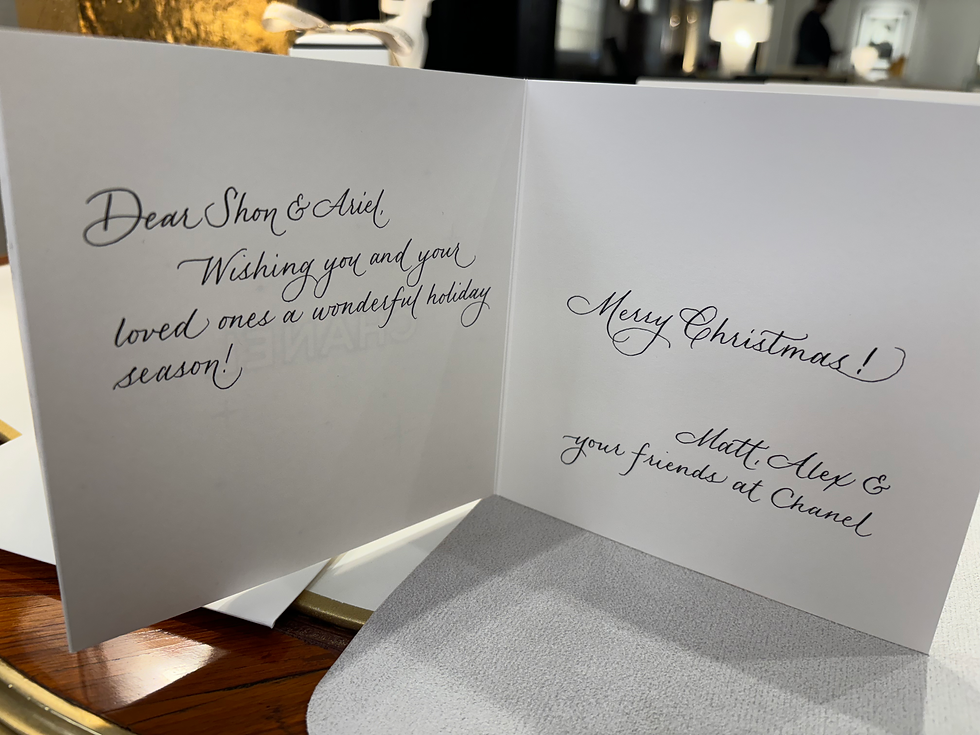 Dear Shon & Ariel,
Wishing you and your
loved ones a wonderful holiday
season!
CHANEL
Merry Christmas!
Matt, Alex &
your friends at Chanel